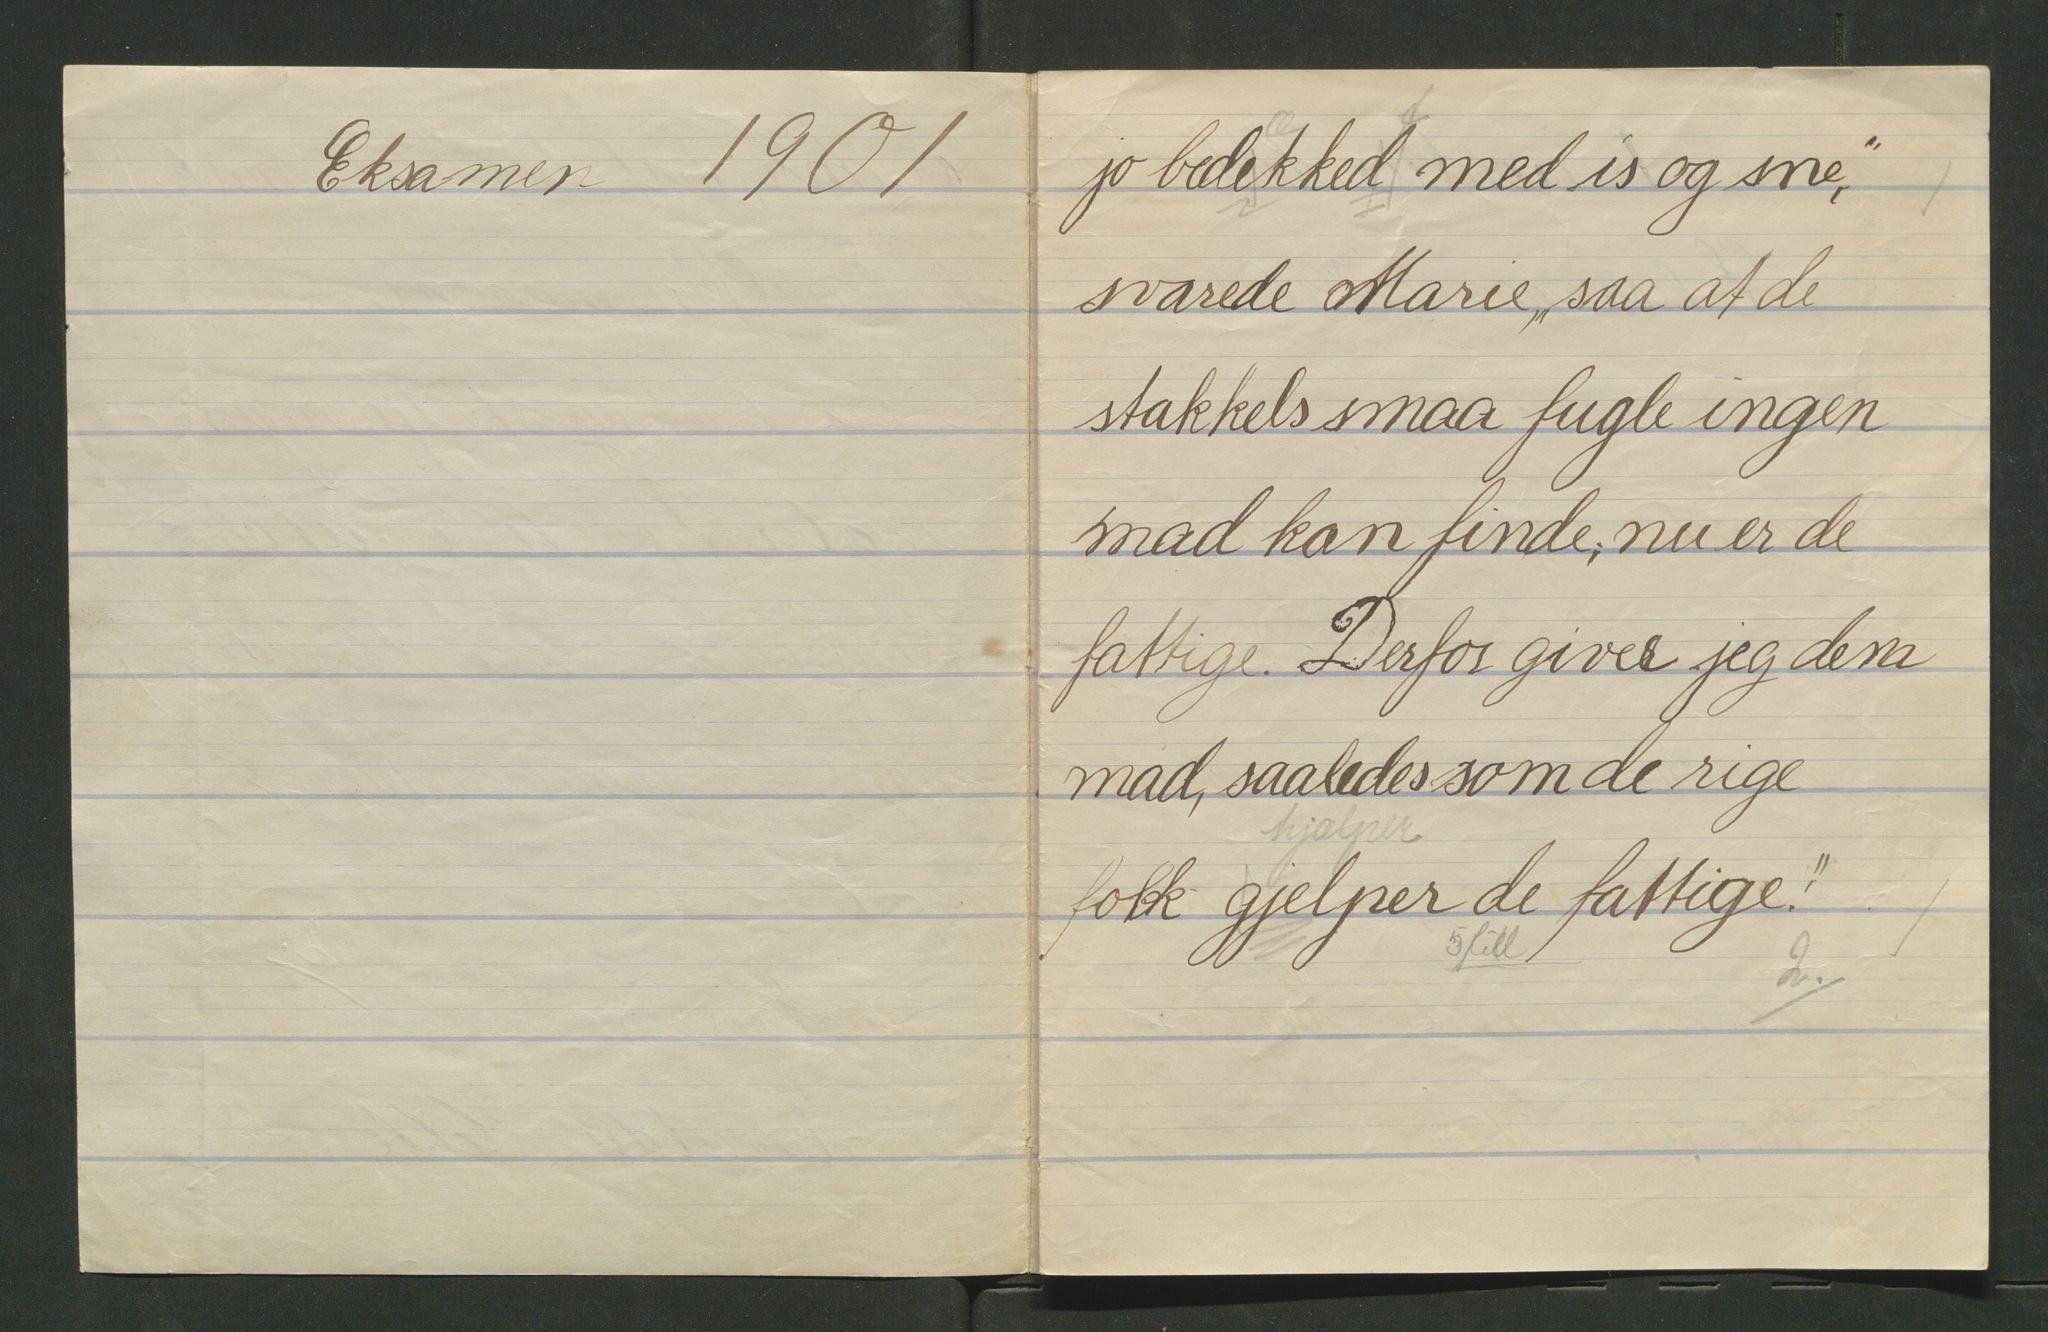 Eksamen 1901
jo bedekked med is og sne,"
svarede Marie, „saa at de
stakkels smaa fugle ingen
mad kan finde; nu er de
fattige. Derfor giver jeg dem
mad, saaledes som de rige
hjælper
folk gjelper de fattige."
5 feil
2.